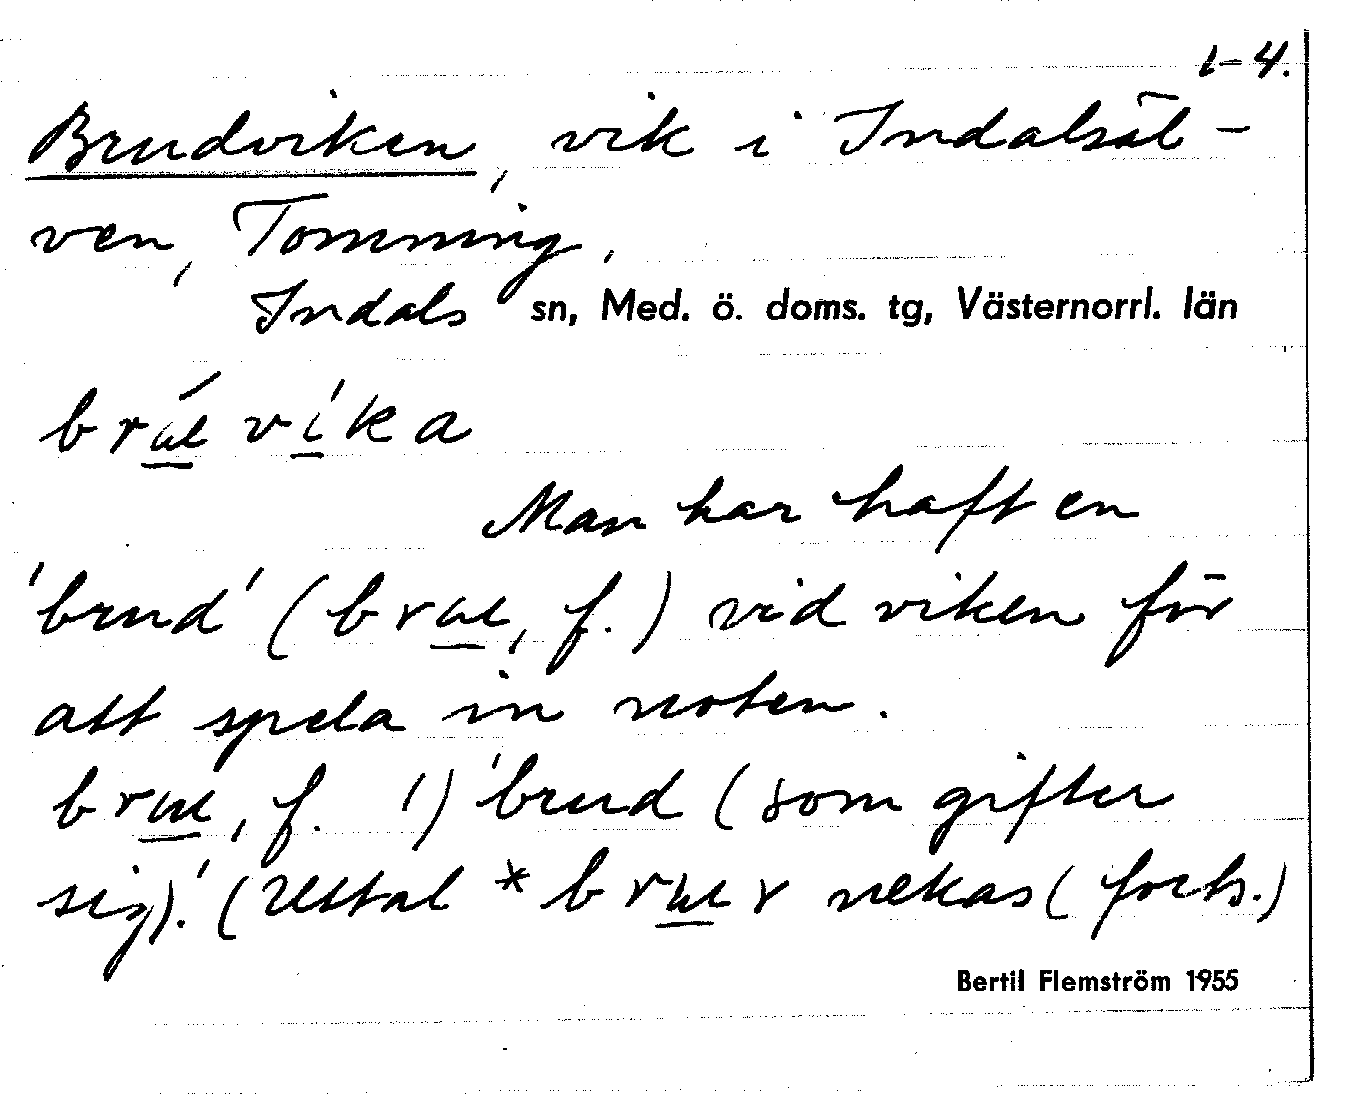 1-4.
Brudviken, vik i Indalsäl-
ven, Tomming.
Indals sn, Med. ö. doms. tg, Västernorrl. län
Man har haft en
'brud' ( f.) vid viken för
att spela in noten.
f. 1) 'brud (som gifter
sig).' (Uttal nekas (forts.)
Bertil Flemström 1955